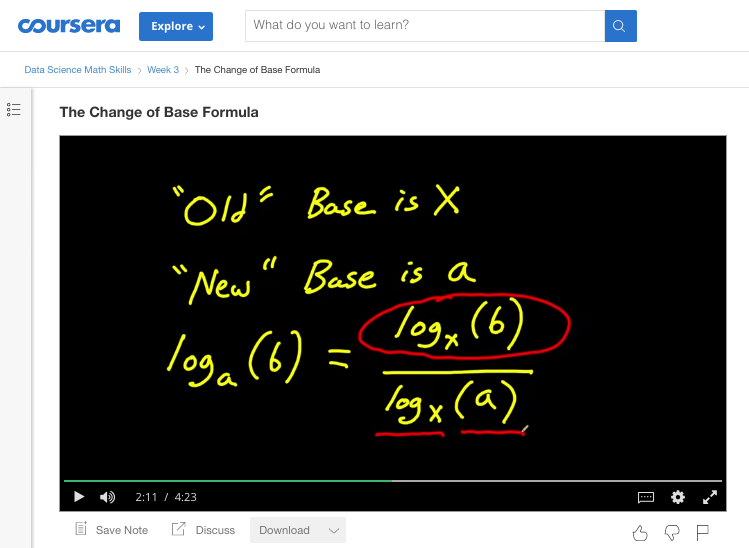 coursera Explore What do you want to learn?
Data Science Math Skills > Week 3 > The Change of Base Formula
The Change of Base Formula
"Old" Base is X
"New" Base is a
logₐ(b) = logₓ(b)
logₓ(a)
2:11 / 4:23
Save Note Discuss Download